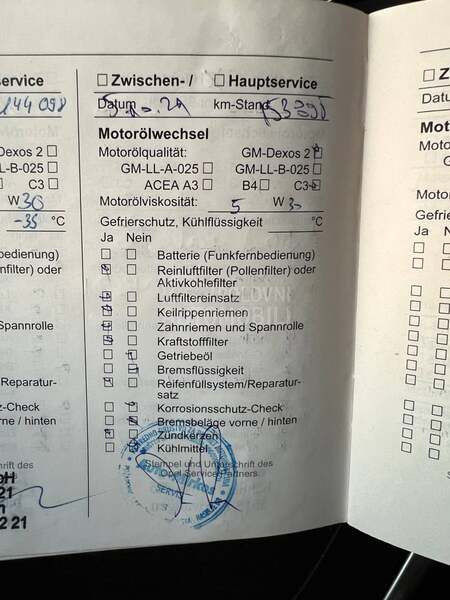 service
144 098
-Dexos 2
-LL-B-025
C3
W 30
-35 °C
bedienung)
nfilter) oder
Spannrolle
/Reparatur-
z-Check
rne / hinten
hrift des
22 21
Zwischen- / Hauptservice
Datum km-Stand
Motorölwechsel
Motorölqualität: GM-Dexos 2
GM-LL-A-025 GM-LL-B-025
ACEA A3 B4 C3
Motorölviskosität: 5 W 30
Gefrierschutz, Kühlflüssigkeit °C
Ja Nein
Batterie (Funkfernbedienung)
Reinluftfilter (Pollenfilter) oder
Aktivkohlefilter
Luftfiltereinsatz
Keilrippenriemen
Zahnriemen und Spannrolle
Kraftstofffilter
Getriebeöl
Bremsflüssigkeit
Reifenfüllsystem/Reparatur-
satz
Korrosionsschutz-Check
Bremsbeläge vorne / hinten
Zündkerzen
Kühlmittel
Stempel und Unterschrift des
Opel Service Partners
SERVIS
Z
Datu
Mot
Moto
Motor
Gefrie
Ja Nein